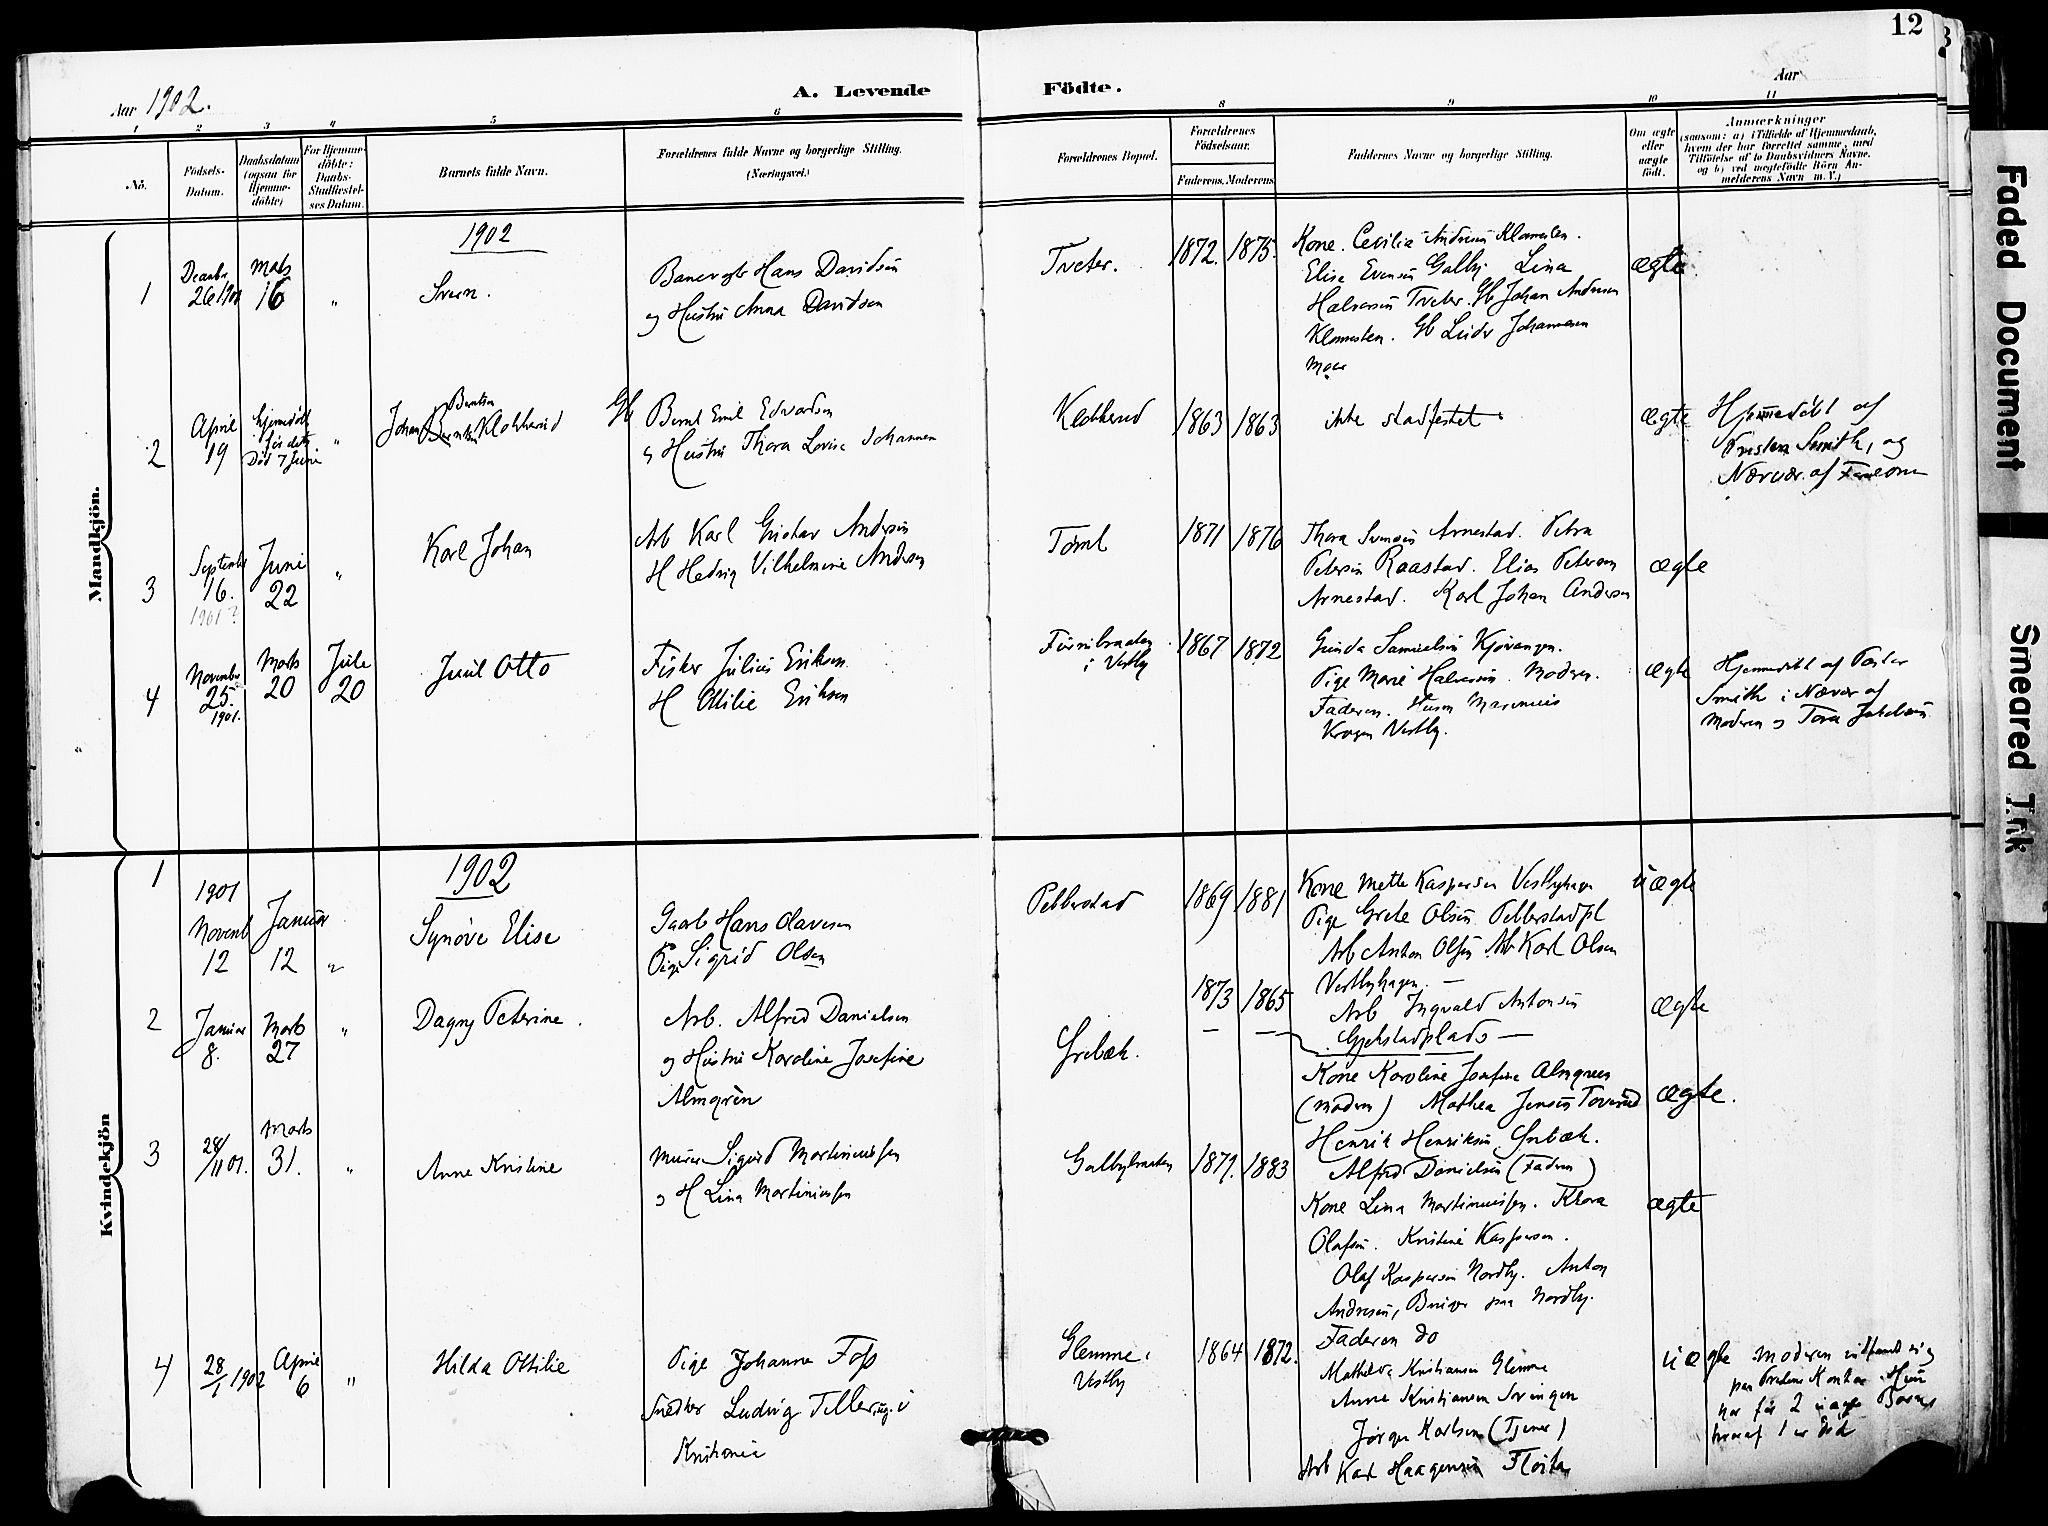 12
Aar 1902.
A. Levende Födte.
Aar
1 2 3 4 5 6 8 9 10 11
No.
Födsels-
Datum.
Daabsdatum
(ogsaa for
Hjemme-
döbte)
For Hjemme-
döbte:
Daabs-
Stadfæstel-
ses Datum.
Barnets fulde Navn.
Forældrenes fulde Navne og borgerlige Stilling.
(Næringsvei.)
Forældrenes Bopæl.
Forældrenes
Födselsaar.
Faderens. Moderens
Faddernes Navne og borgerlige Stilling.
Om ægte
eller
uægte
födt.
Anmærkninger
(saasom: a) i Tilfælde af Hjemmedaab,
hvem der har forrettet samme, med
Tilföielse af to Daabsvidners Navne.
og b) ved uegtefödte Börn An-
melderens Navn m. V.)
Mandkjön.
1902
1
26 1901
16
"
Hans Davidsen
og Hustru Anna Davidsen
Tveter.
1872. 1875.
Kone. Cecilia Andersen
Elise Evensen Galby Lina
Halvorsen Tveter. Gb Johan Andersen
Gb Johannesen
ægte
2
April
19
hjemmedöbt
Död 7 Juni
"
Johan Berntsen Klokkerud
Gb Bernt Emil Edvardsen
og Hustru Thora Lovise Johannesen
Klokkerud
1863 1863
ikke stadfestet
ægte
Hjemmedöbt af
Smith, og
Nærvær. af
3
September
16.
1901?
Juni
22
"
Karl Johan
Arb Karl Gustav Andersen
H Hedvig Vilhelmine Andersen
1871 1876
Thora Svensen Arnestad. Petra
Petersen Raastad. Elias Petersen
Arnestad. Karl Johan Andersen
ægte
4
November
25.
1901.
Marts
20
Jule
20
Juul Otto
Fisker Julius Eriksen
H Ottilie Eriksen
i Vestby
1867 1872
Gunda Samuelsen
Pige Marie Halvorsen. Moderen.
Faderen.
Krogen Vestby.
ægte
Hjemmedöbt af Pastor
Smith i Nærvær af
Moderen og Tora Jakobsen
Kvindekjön
1902
1
1901
Novemb
12
Januar
12
"
Synöve Elise
Gaarb Hans Olavesen
Pige Sigrid Olsen
Pellerstad
1869 1881
Kone Mette Kaspersen Vestbyhagen
Pige Grete Olsen Pellerstadpl
Arb Anton Olsen Arb Karl Olsen
Vestbyhagen. —
uægte
2
Januar
8.
Marts
27
"
Dagny Peterine.
Arb. Alfred Danielsen
og Hustru Karoline Josefine
Almgrèn
Grebæk.
1873 1865
Arb Ingvald Antonsen
Gjekstadplads —
ægte
Kone Karoline Josefine Almgreen
(Moderen) Mathea Jensen Toverud
Henrik Henriksen Grebæk.
Alfred Danielsen (Faderen)
ægte.
3
28/11 01.
Marts
31.
"
Anne Kristine
Murer Sigurd Martiniussen
og H Lina Martiniussen
Galbybraaten
1879. 1883
Kone Lina Martiniussen. Klara
Olafsen. Kristine Kaspersen.
Olaf Kaspersen Nordby. Anton
Andresen, Bruger paa Nordby.
Faderen do
ægte
4
28/1 1902
April
6
"
Hilda Ottilie
Pige Johanne Foss
Snedker Ludvig Teller, ug. i
Kristiania
Glemme,
Vestby
1864 1872.
Mathilde Kristiansen Glemme
Anne Kristiansen
Jörgen Karlsen (Tjener)
Arb Karl Haagensen
uægte
Moderen
paa Kontor. Hun
har för 2 uægte Börn,
hvoraf 1 er död
Faded Document
Smeared Ink